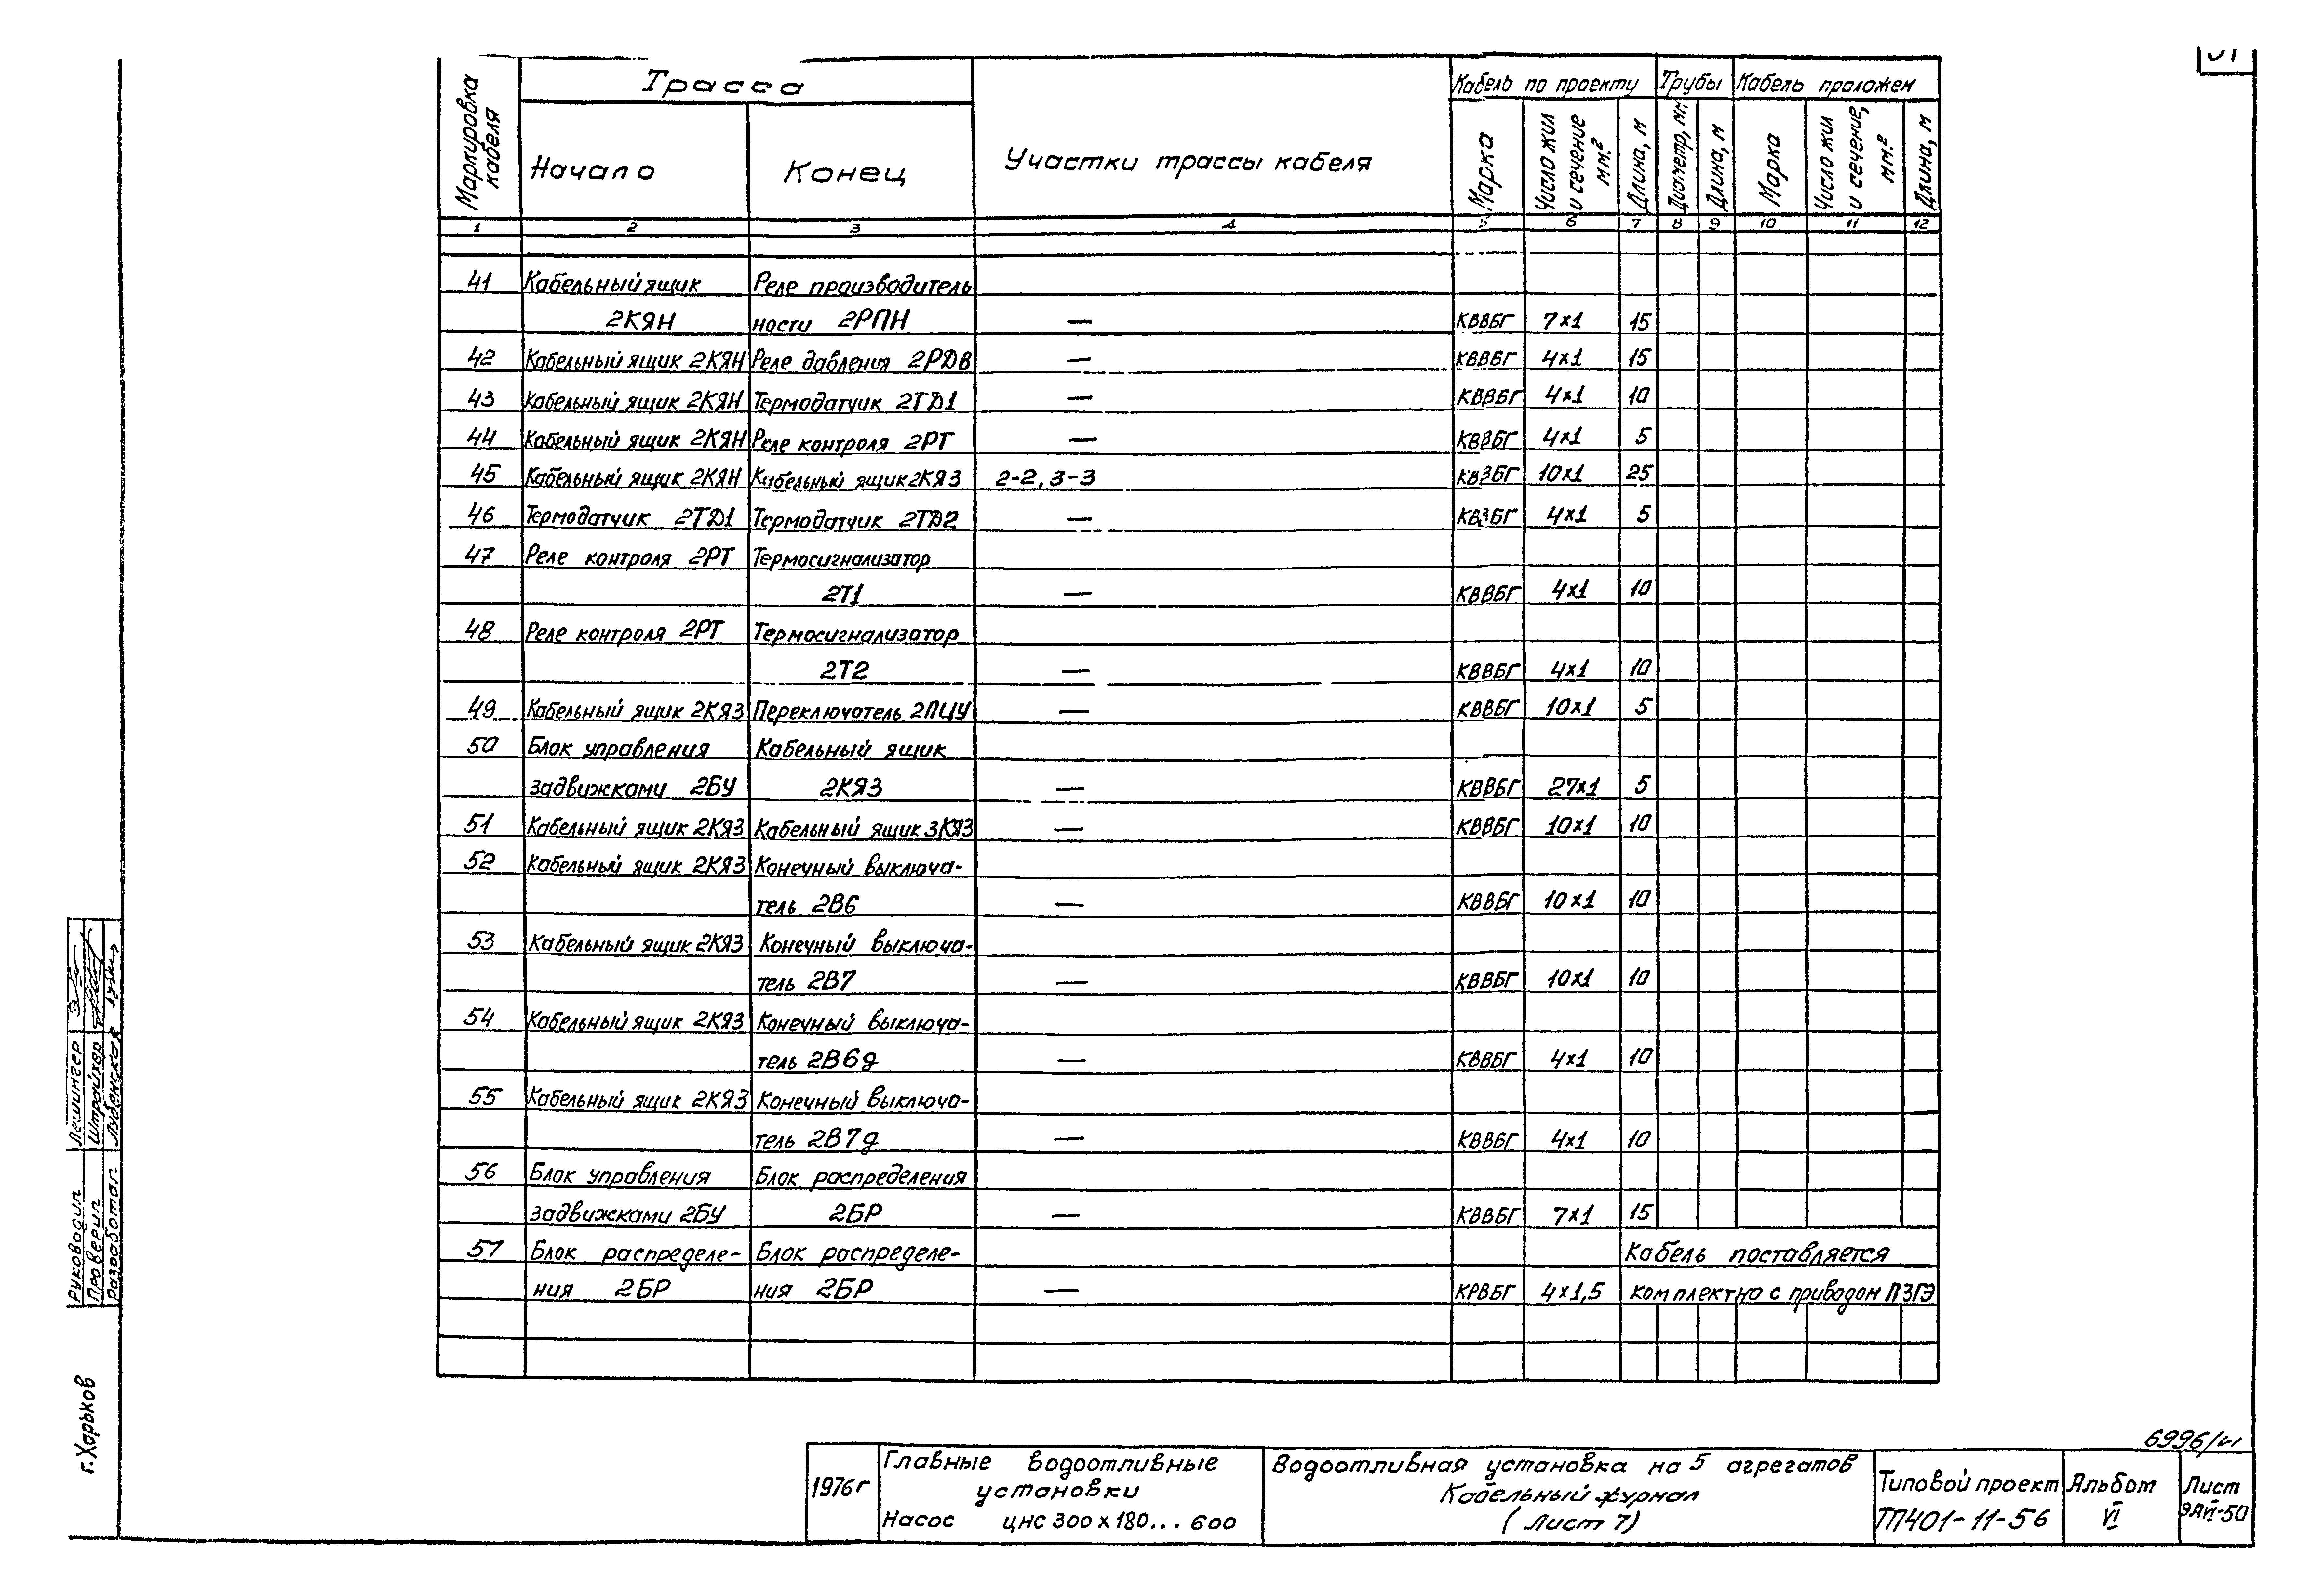 Маркировка кабеля | Трасса | Участки трассы кабеля | Кабель по проекту | Трубы | Кабель проложен
Начало | Конец | Марка | Число жил и сечение мм.² | Длина, м | Диаметр, мм. | Длина, м | Марка | Число жил и сечение, мм.² | Длина, м
1 | 2 | 3 | 4 | 5 | 6 | 7 | 8 | 9 | 10 | 11 | 12
41 | Кабельный ящик | Реле производитель
2КЯН | ности 2РПН | — | КВВБГ | 7х1 | 15
42 | Кабельный ящик 2КЯН | Реле давления 2РДВ | — | КВВБГ | 4х1 | 15
43 | Кабельный ящик 2КЯН | Термодатчик 2ТД1 | — | КВВБГ | 4х1 | 10
44 | Кабельный ящик 2КЯН | Реле контроля 2РТ | — | КВВБГ | 4х1 | 5
45 | Кабельный ящик 2КЯН | Кабельный ящик 2КЯЗ | 2-2, 3-3 | КВВБГ | 10х1 | 25
46 | Термодатчик 2ТД1 | Термодатчик 2ТД2 | — | КВВБГ | 4х1 | 5
47 | Реле контроля 2РТ | Термосигнализатор
2Т1 | — | КВВБГ | 4х1 | 10
48 | Реле контроля 2РТ | Термосигнализатор
2Т2 | — | КВВБГ | 4х1 | 10
49 | Кабельный ящик 2КЯЗ | Переключатель 2ПЦУ | — | КВВБГ | 10х1 | 5
50 | Блок управления | Кабельный ящик
задвижками 2БУ | 2КЯЗ | — | КВВБГ | 27х1 | 5
51 | Кабельный ящик 2КЯЗ | Кабельный ящик 3КЯЗ | — | КВВБГ | 10х1 | 10
52 | Кабельный ящик 2КЯЗ | Конечный выключа-
тель 2В6 | — | КВВБГ | 10х1 | 10
53 | Кабельный ящик 2КЯЗ | Конечный выключа-
тель 2В7 | — | КВВБГ | 10х1 | 10
54 | Кабельный ящик 2КЯЗ | Конечный выключа-
тель 2В6д | — | КВВБГ | 4х1 | 10
55 | Кабельный ящик 2КЯЗ | Конечный выключа-
тель 2В7д | — | КВВБГ | 4х1 | 10
56 | Блок управления | Блок распределения
задвижками 2БУ | 2БР | — | КВВБГ | 7х1 | 15
57 | Блок распределе- | Блок распределе- | Кабель поставляется
ния 2БР | ния 2БР | — | КРВБГ | 4х1,5 | комплектно с приводом ПЗГЭ
Руководил Леммнгер
Проверил Штрайхер
Разработал Лубенская
г. Харьков
6996/VI
1976г
Главные водоотливные
установки
Насос ЦНС 300х180...600
Водоотливная установка на 5 агрегатов
Кабельный журнал
(Лист 7)
Типовой проект
ТП401-11-56
Альбом
VI
Лист
ЭАVI-50